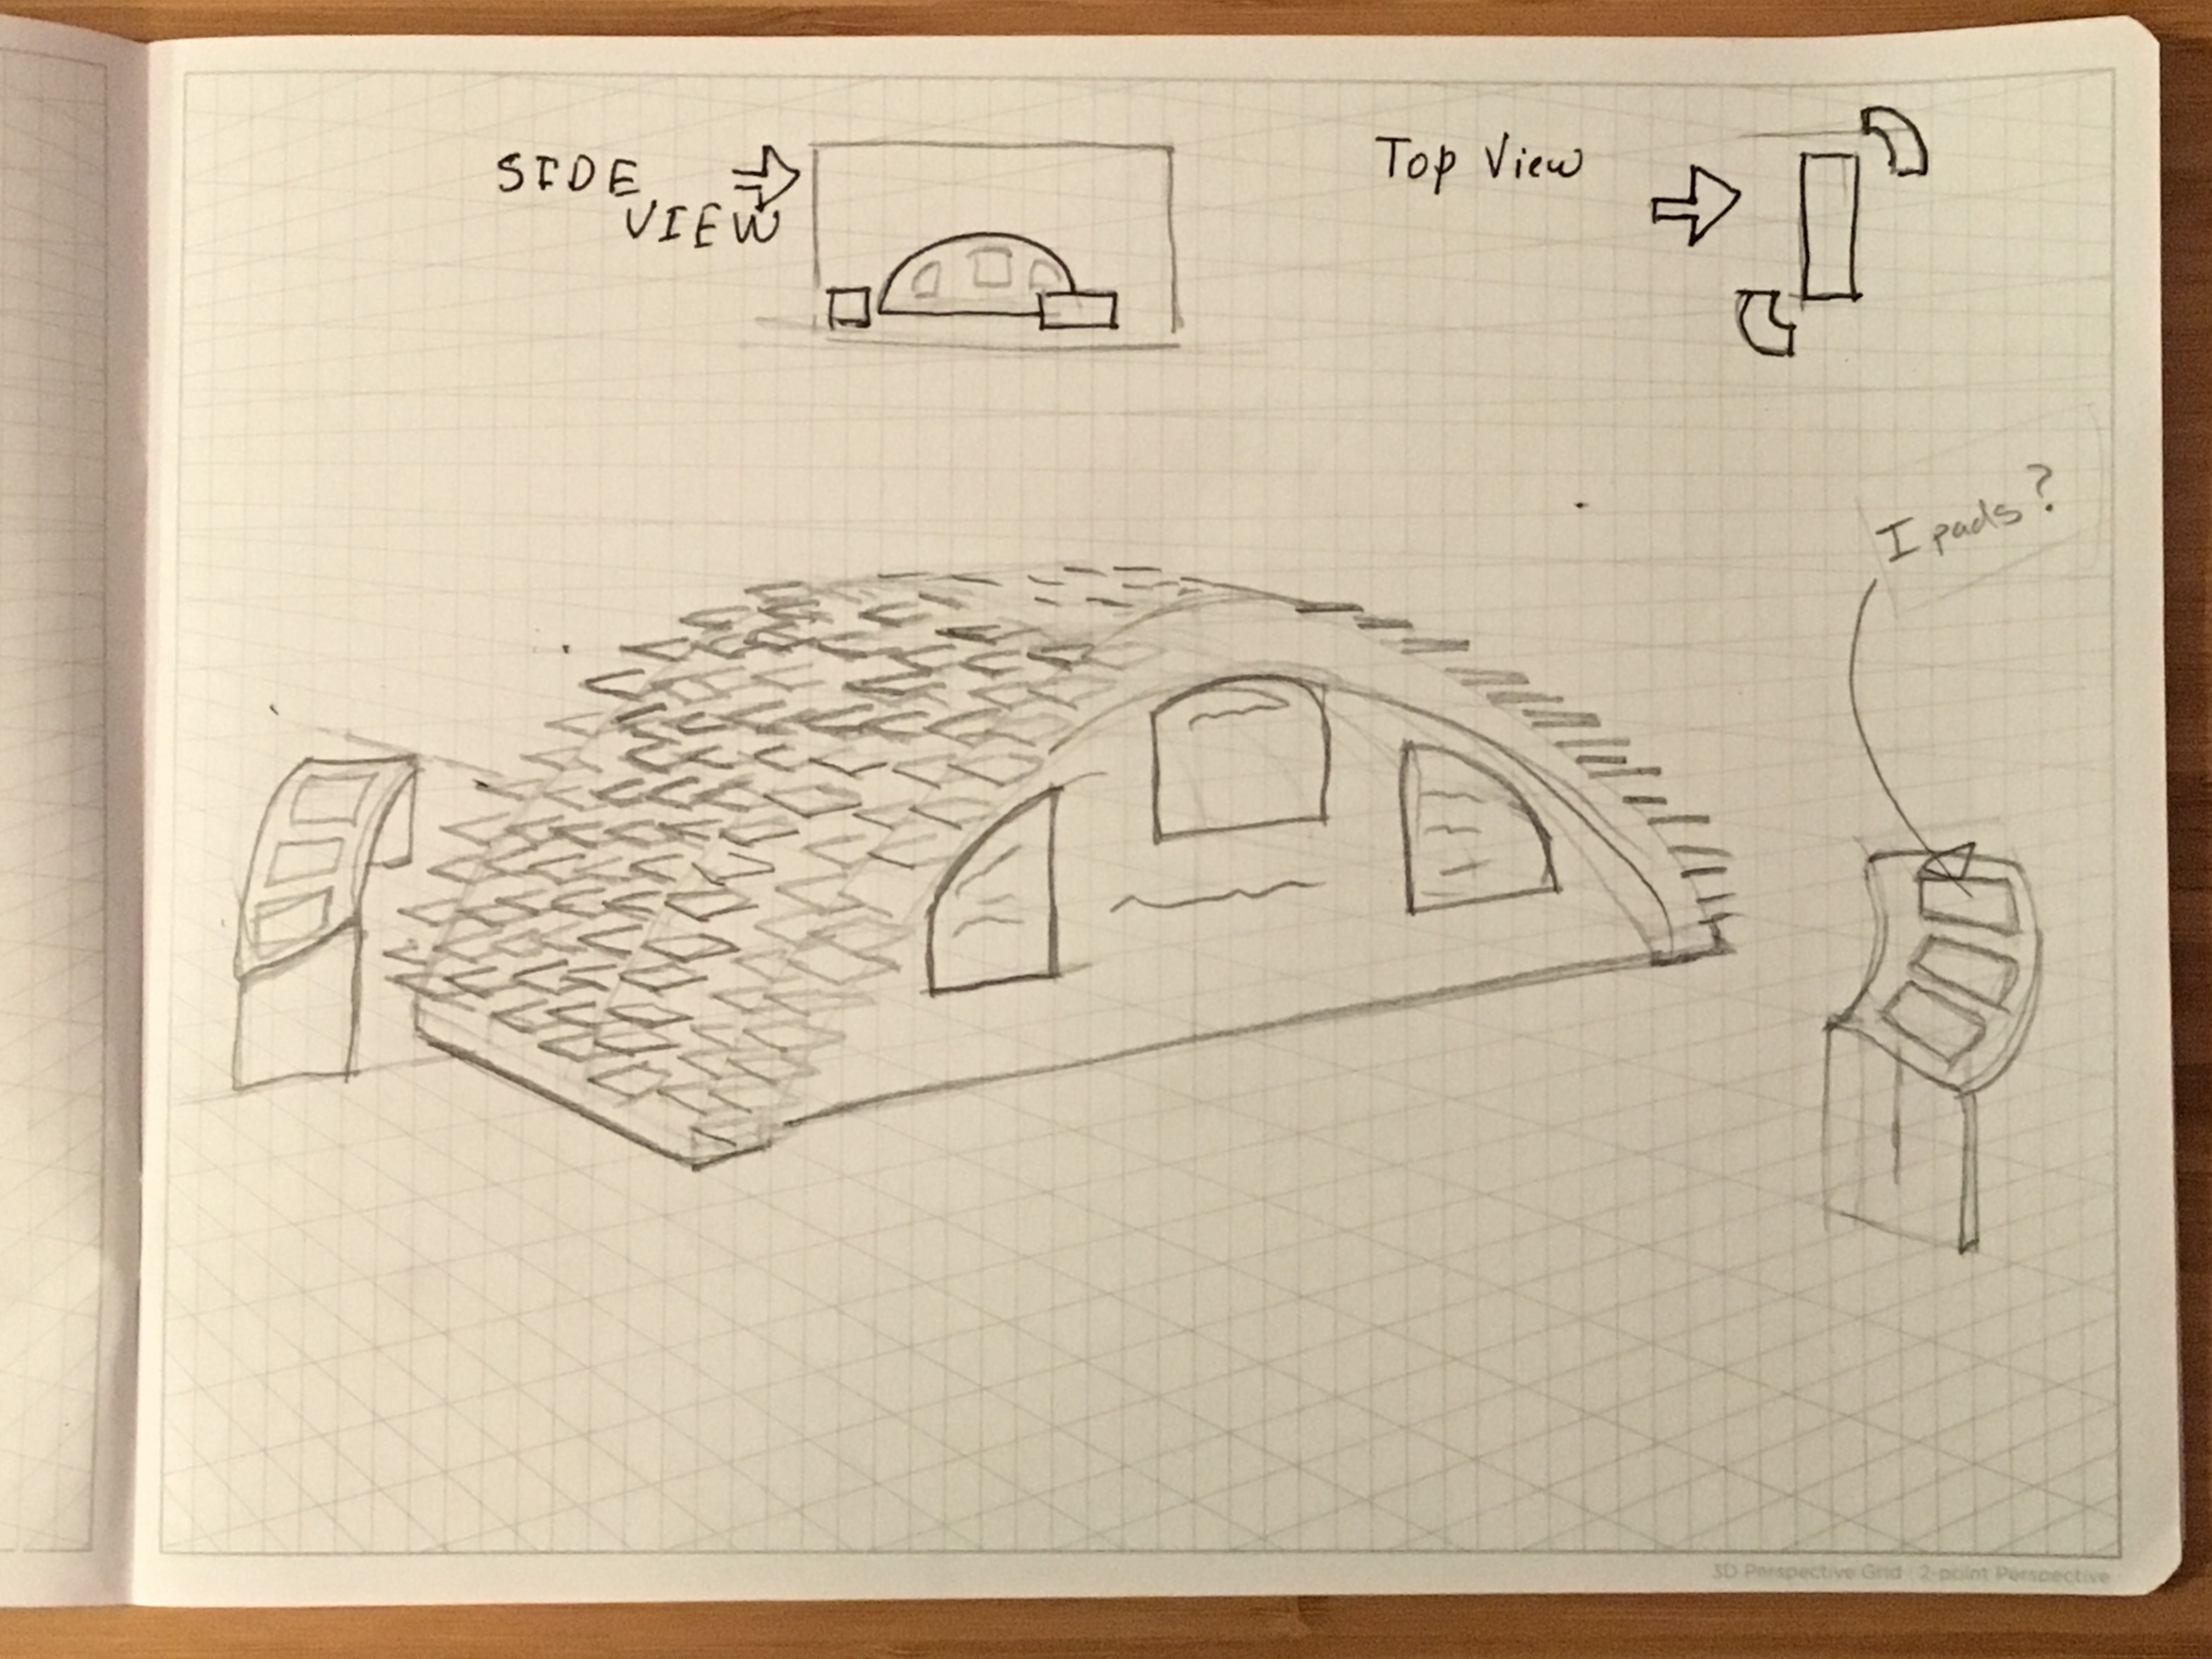 SIDE
VIEW
Top View
I pads?
3D Perspective Grid | 2-point Perspective